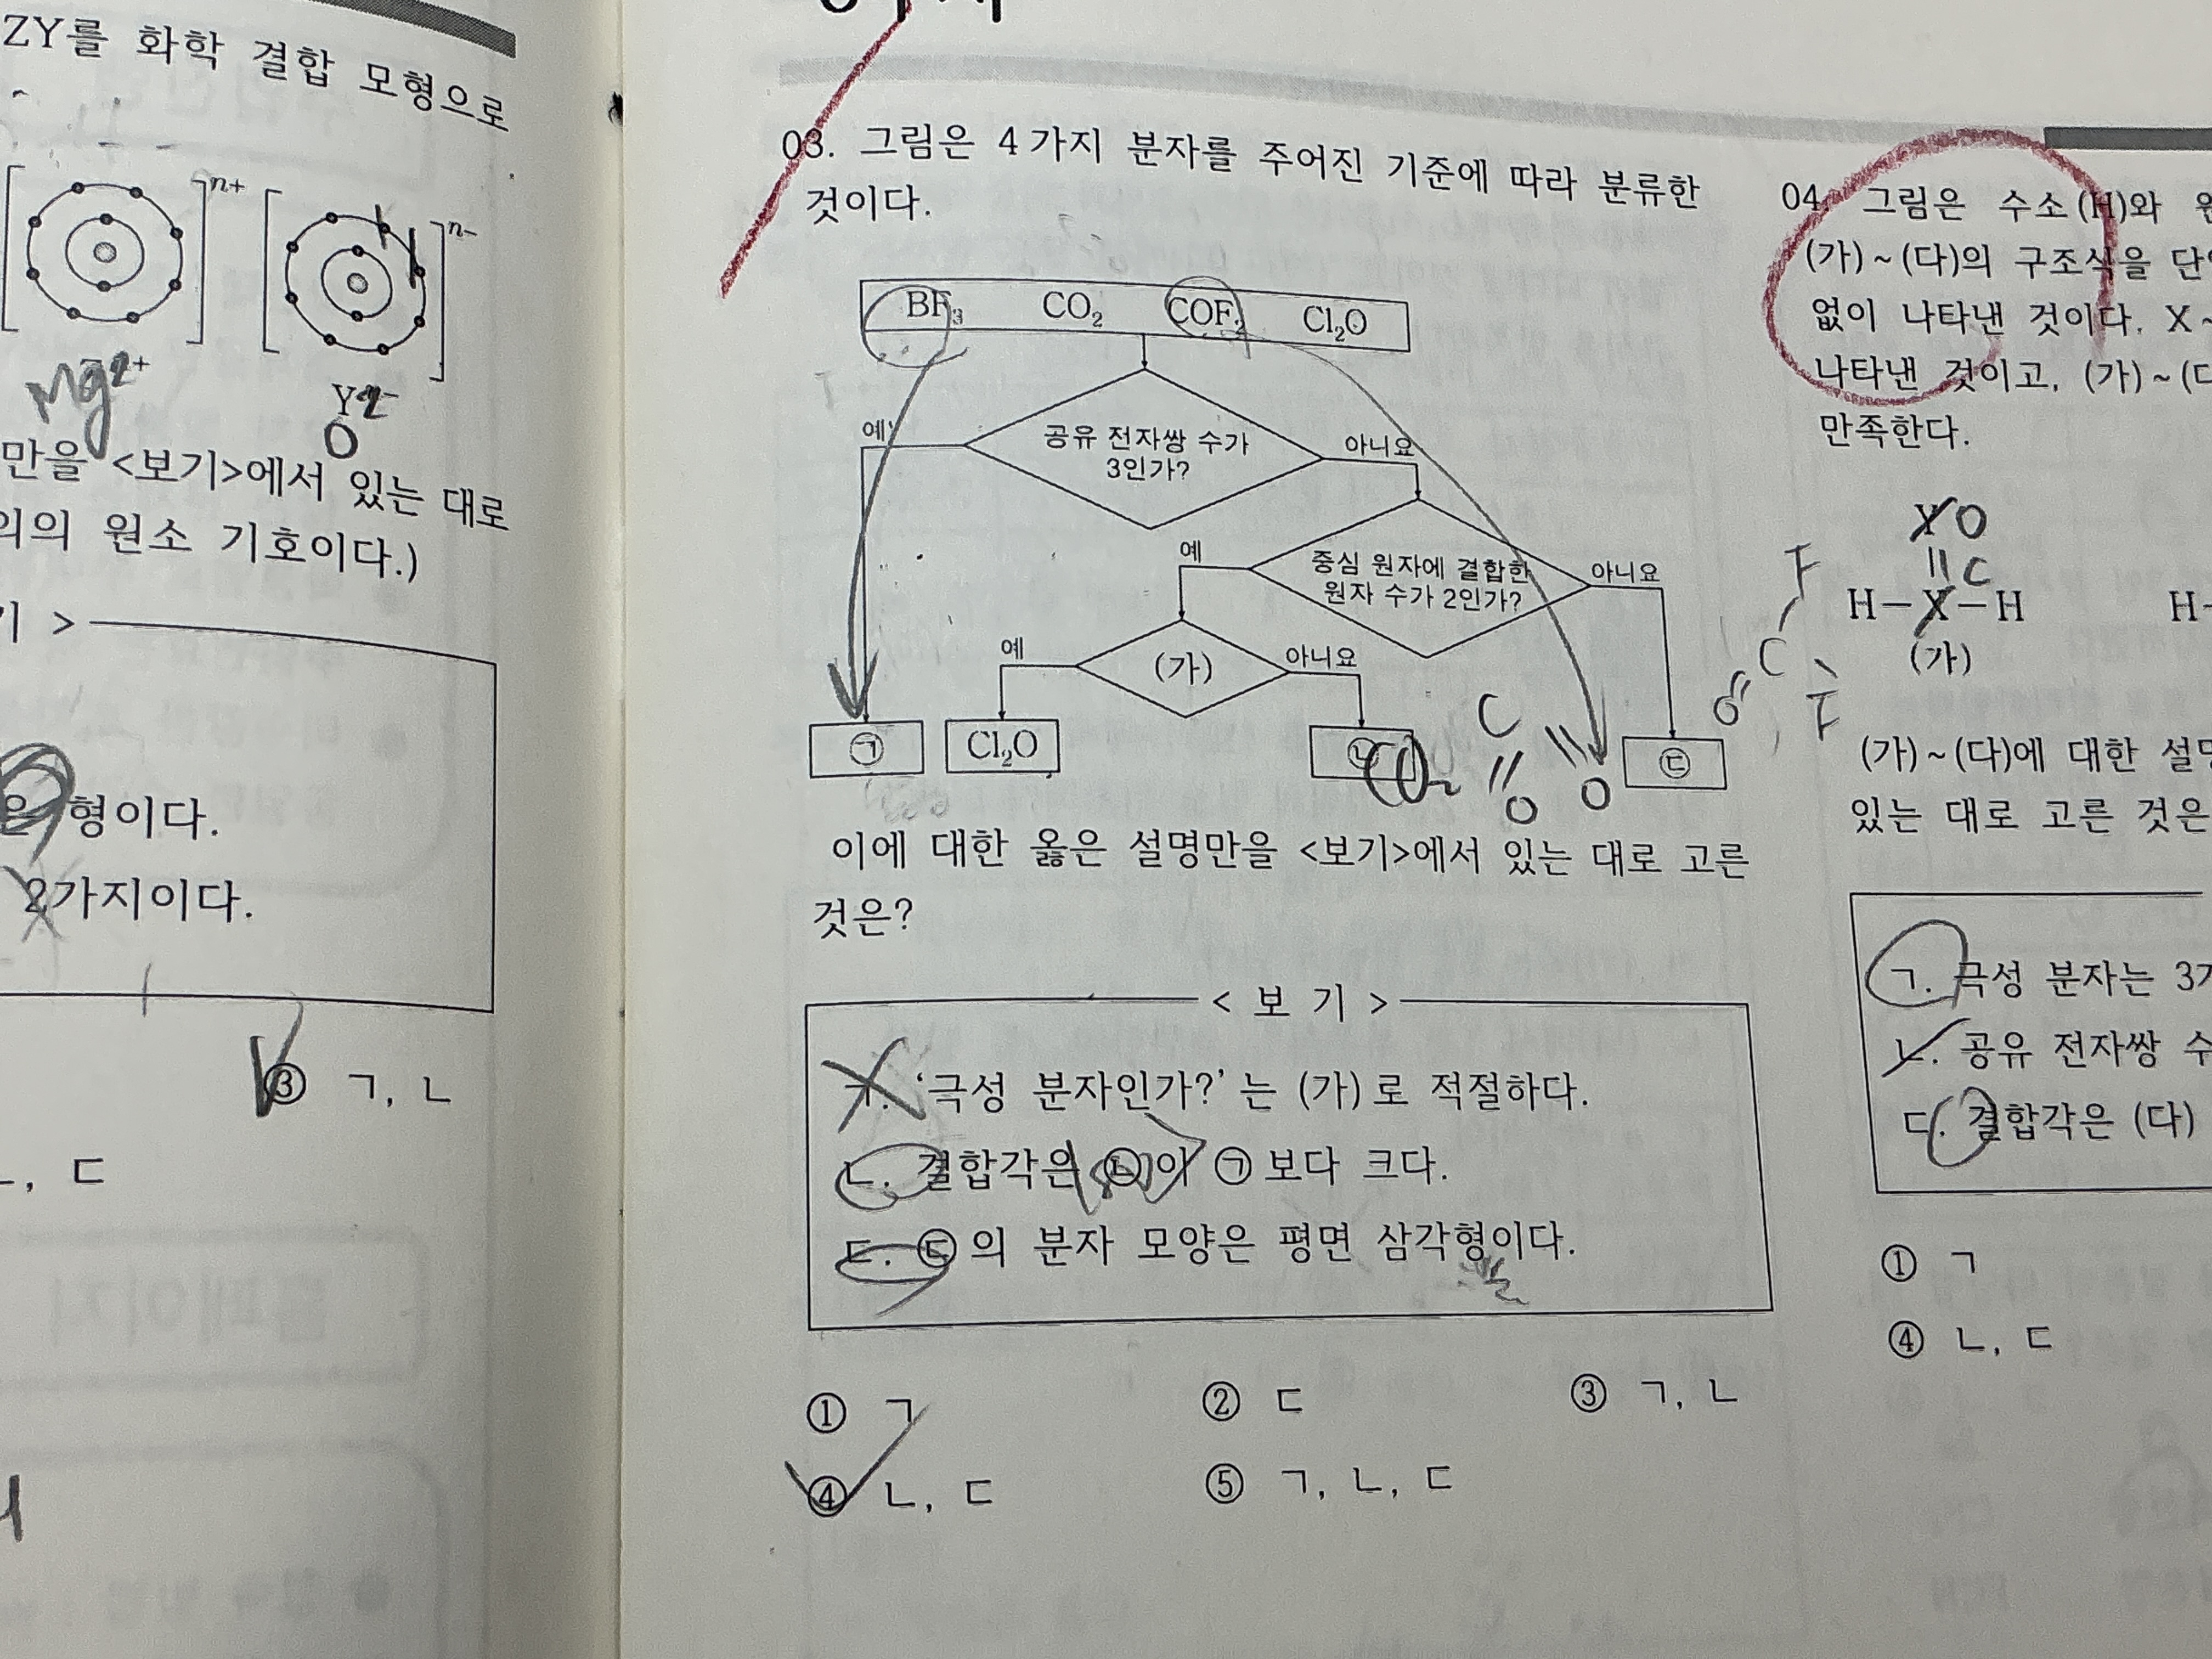 ZY를 화학 결합 모형으로
n+
n-
Mg2+
Y2-
O
만을 <보기>에서 있는 대로
의의 원소 기호이다.)
기 >
은 형이다.
2가지이다.
③ ㄱ, ㄴ
ㄴ, ㄷ
03. 그림은 4가지 분자를 주어진 기준에 따라 분류한
것이다.
BF₃ CO₂ COF₂ Cl₂O
공유 전자쌍 수가
3인가?
예 아니요
중심 원자에 결합한
원자 수가 2인가?
예 아니요
(가)
예 아니요
㉠ Cl₂O ㉡ ㉢
CO₂
C
O O
F
C
O F
이에 대한 옳은 설명만을 <보기>에서 있는 대로 고른
것은?
< 보 기 >
ㄱ. '극성 분자인가?'는 (가)로 적절하다.
ㄴ. 결합각은 ㉡이 ㉠보다 크다.
ㄷ. ㉢의 분자 모양은 평면 삼각형이다.
① ㄱ ② ㄷ ③ ㄱ, ㄴ
④ ㄴ, ㄷ ⑤ ㄱ, ㄴ, ㄷ
04. 그림은 수소(H)와 원
(가)~(다)의 구조식을 단
없이 나타낸 것이다. X~
나타낸 것이고, (가)~(다
만족한다.
Y O
C
H-X-H H-
(가)
(가)~(다)에 대한 설명
있는 대로 고른 것은
ㄱ. 극성 분자는 3가
ㄴ. 공유 전자쌍 수
ㄷ. 결합각은 (다)
① ㄱ
④ ㄴ, ㄷ